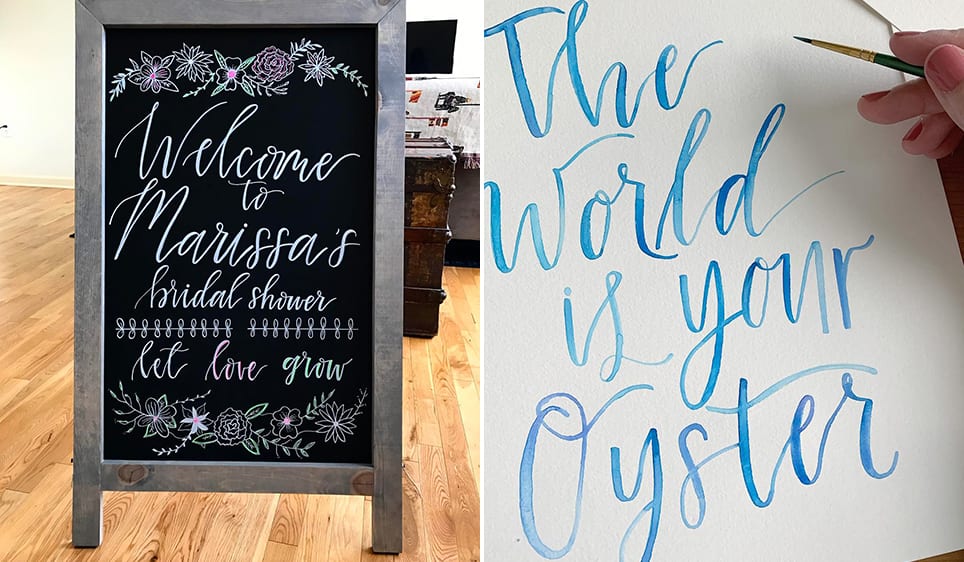 Welcome
to
Marissa's
bridal shower
let love grow
The
World
is your
Oyster